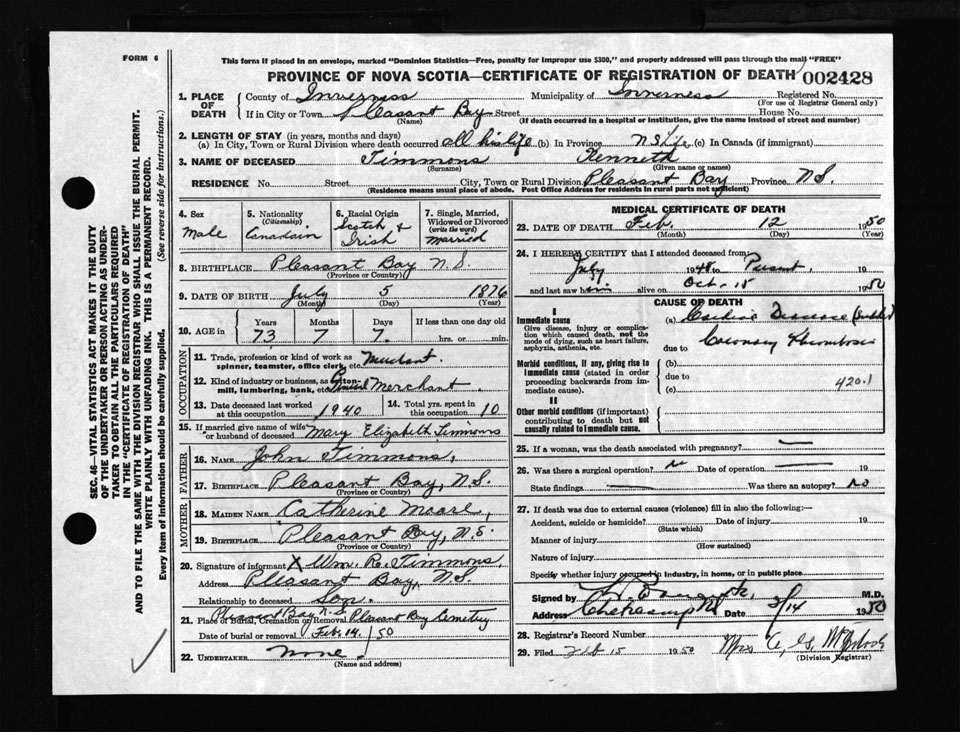 FORM 6
This form if placed in an envelope, marked "Dominion Statistics—Free, penalty for improper use $300," and properly addressed will pass through the mail "FREE"
PROVINCE OF NOVA SCOTIA—CERTIFICATE OF REGISTRATION OF DEATH 002428
1. PLACE OF DEATH County of Inverness Municipality of Inverness Registered No.
(For use of Registrar General only)
If in City or Town Pleasant Bay Street House No.
(Name) (If death occurred in a hospital or institution, give the name instead of street and number)
2. LENGTH OF STAY (in years, months and days)
(a) In City, Town or Rural Division where death occurred all his life (b) In Province N.S. Life (c) In Canada (if immigrant)
3. NAME OF DECEASED Timmons Kenneth
(Surname) (Given name or names)
RESIDENCE No. Street City, Town or Rural Division Pleasant Bay Province N.S.
(Residence means usual place of abode. Post Office Address for residents in rural parts not sufficient)
4. Sex Male
5. Nationality (Citizenship) Canadain
6. Racial Origin Scotch & Irish
7. Single, Married, Widowed or Divorced (write the word) Married
8. BIRTHPLACE Pleasant Bay N.S.
(Province or Country)
9. DATE OF BIRTH July 5 1876
(Month) (Day) (Year)
10. AGE in Years Months Days If less than one day old
73 7 7. hrs. or min.
OCCUPATION
11. Trade, profession or kind of work as spinner, teamster, office clerk, etc. Merchant.
12. Kind of industry or business, as cotton-mill, lumbering, bank, etc. General Merchant.
13. Date deceased last worked at this occupation 1940
14. Total yrs. spent in this occupation 10
15. If married give name of wife or husband of deceased Mary Elizabeth Timmons
FATHER
16. NAME John Timmons,
17. BIRTHPLACE Pleasant Bay, N.S.
(Province or Country)
MOTHER
18. MAIDEN NAME Catherine Moore,
19. BIRTHPLACE Pleasant Bay, N.S.
(Province or Country)
20. Signature of informant X Wm. R. Timmons,
Address Pleasant Bay, N.S.
Relationship to deceased Son.
Pleasant Bay N.S.
21. Place of Burial, Cremation or Removal Pleasant Bay Cemetry
Date of burial or removal Feb. 14. / 50
22. UNDERTAKER None
(Name and address)
MEDICAL CERTIFICATE OF DEATH
23. DATE OF DEATH Feb. 12 1950
(Month) (Day) (Year)
24. I HEREBY CERTIFY that I attended deceased from
July 1948 to Present. 19
and last saw him alive on Oct. 15 1950
CAUSE OF DEATH
I
Immediate cause
Give disease, injury or complication which caused death, not the mode of dying, such as heart failure, asphyxia, asthenia, etc.
(a) Cardiac Disease
due to Coronary Thrombosis
Morbid conditions, if any, giving rise to immediate cause (stated in order proceeding backwards from immediate cause).
(b)
due to
(c) 420.1
II
Other morbid conditions (if important) contributing to death but not causally related to immediate cause.
25. If a woman, was the death associated with pregnancy? —
26. Was there a surgical operation? Date of operation — 19
State findings — Was there an autopsy? No
27. If death was due to external causes (violence) fill in also the following:—
Accident, suicide or homicide? Date of injury 19
(State which)
Manner of injury
(How sustained)
Nature of injury
Specify whether injury occurred in industry, in home, or in public place
Signed by M.D.
Address Date 2/14 1950
28. Registrar's Record Number
29. Filed Feb 15 1950 Mrs A. G. McIntosh
(Division Registrar)
SEC. 46—VITAL STATISTICS ACT MAKES IT THE DUTY
OF THE UNDERTAKER OR PERSON ACTING AS UNDER-
TAKER TO OBTAIN ALL THE PARTICULARS REQUIRED
IN THE "CERTIFICATE OF REGISTRATION OF DEATH"
AND TO FILE THE SAME WITH THE DIVISION REGISTRAR WHO SHALL ISSUE THE BURIAL PERMIT.
WRITE PLAINLY WITH UNFADING INK. THIS IS A PERMANENT RECORD.
Every item of information should be carefully supplied. (See reverse side for instructions.)